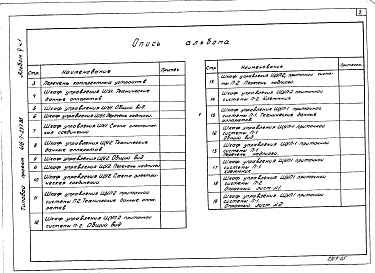 3
Альбом
Типовой проект
Опись альбома
Стр.
Наименование
Примеч.
3 Перечень комплектных устройств
4 Шкаф управления ШУ1. Технические
данные аппаратов
5 Шкаф управления ШУ1. Общий вид
6 Шкаф управления ШУ1. Перечень надписей.
7 Шкаф управления ШУ1. Схема электричес-
кая соединений
8 Шкаф управления ШУ2. Технические
данные аппаратов
9 Шкаф управления ШУ2. Общий вид
9 Шкаф управления ШУ2. Перечень надписей
10 Шкаф управления ШУ2. Схема электри-
ческая соединений
11 Шкаф управления ЩУП2 приточной
системы П-2. Технические данные аппа-
ратов
12 Шкаф управления ЩУП2 приточной
системы П-2. Общий вид
Стр.
Наименование
Примечан.
13 Шкаф управления ЩУП2, приточной систе-
мы П-2. Перечень надписей
14 Шкаф управления ЩУП2 приточной
системы П-2. Клеммник
15 Шкаф управления ЩУП1 приточной
системы П-1. Технические данные
аппаратов
16 Шкаф управления ЩУП1 приточной
системы П-1.
Общий вид
Шкаф управления ЩУП-1 приточной
системы П-1.
Перечень надписей.
17 Шкаф управления ЩУП1 приточной
системы П-1
Клеммник
18 Шкаф управления ЩУП1 приточной
системы П-2.
Опросный лист №1.
19 Шкаф управления ЩУП1 приточной
системы П-1.
Опросный лист №2